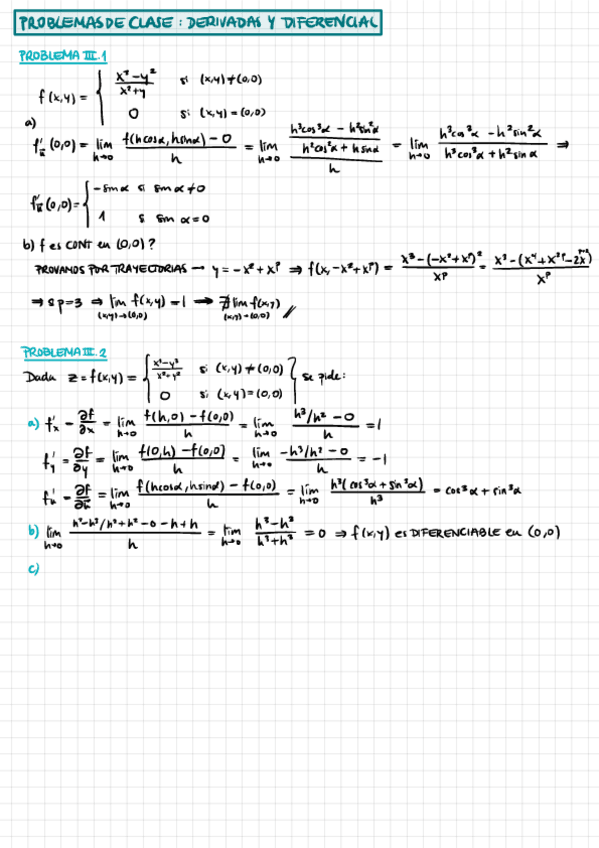 PROBLEMAS DE CLASE: DERIVADAS Y DIFERENCIAL
PROBLEMA III.1
f(x,y) = { (x³-y²)/(x²+y) si (x,y)≠(0,0)
0 si (x,y)=(0,0)
a)
f'ū(0,0) = lim h→0 (f(hcosα, hsinα) - 0)/h = lim h→0 ((h³cos³α - h²sin²α)/(h²cos²α + hsinα))/h = lim h→0 (h³cos³α - h²sin²α)/(h³cos²α + h²sinα) ⇒
f'ū(0,0) = { -sinα si sinα≠0
1 si sinα=0
b) f es CONT en (0,0)?
PROVAMOS POR TRAYECTORIAS → y = -x²+xᵖ ⇒ f(x,-x²+xᵖ) = (x³-(-x²+xᵖ)²)/xᵖ = (x³-(x⁴+x²ᵖ-2xᵖ⁺²))/xᵖ
⇒ si p=3 ⇒ lim (x,y)→(0,0) f(x,y) = 1 → ∄ lim (x,y)→(0,0) f(x,y) //
PROBLEMA III.2
Dada z = f(x,y) = { (x³-y³)/(x²+y²) si (x,y)≠(0,0)
0 si (x,y)=(0,0) } se pide:
a) f'x = ∂f/∂x = lim h→0 (f(h,0) - f(0,0))/h = lim h→0 (h³/h² - 0)/h = 1
f'y = ∂f/∂y = lim h→0 (f(0,h) - f(0,0))/h = lim h→0 (-h³/h² - 0)/h = -1
f'ū = ∂f/∂ū = lim h→0 (f(hcosα, hsinα) - f(0,0))/h = lim h→0 h³(cos³α + sin³α)/h³ = cos³α + sin³α
b) lim h→0 (h³-h³/h²+h² - 0 - h + h)/h = lim h→0 (h³-h³)/(h³+h³) = 0 ⇒ f(x,y) es DIFERENCIABLE en (0,0)
c)